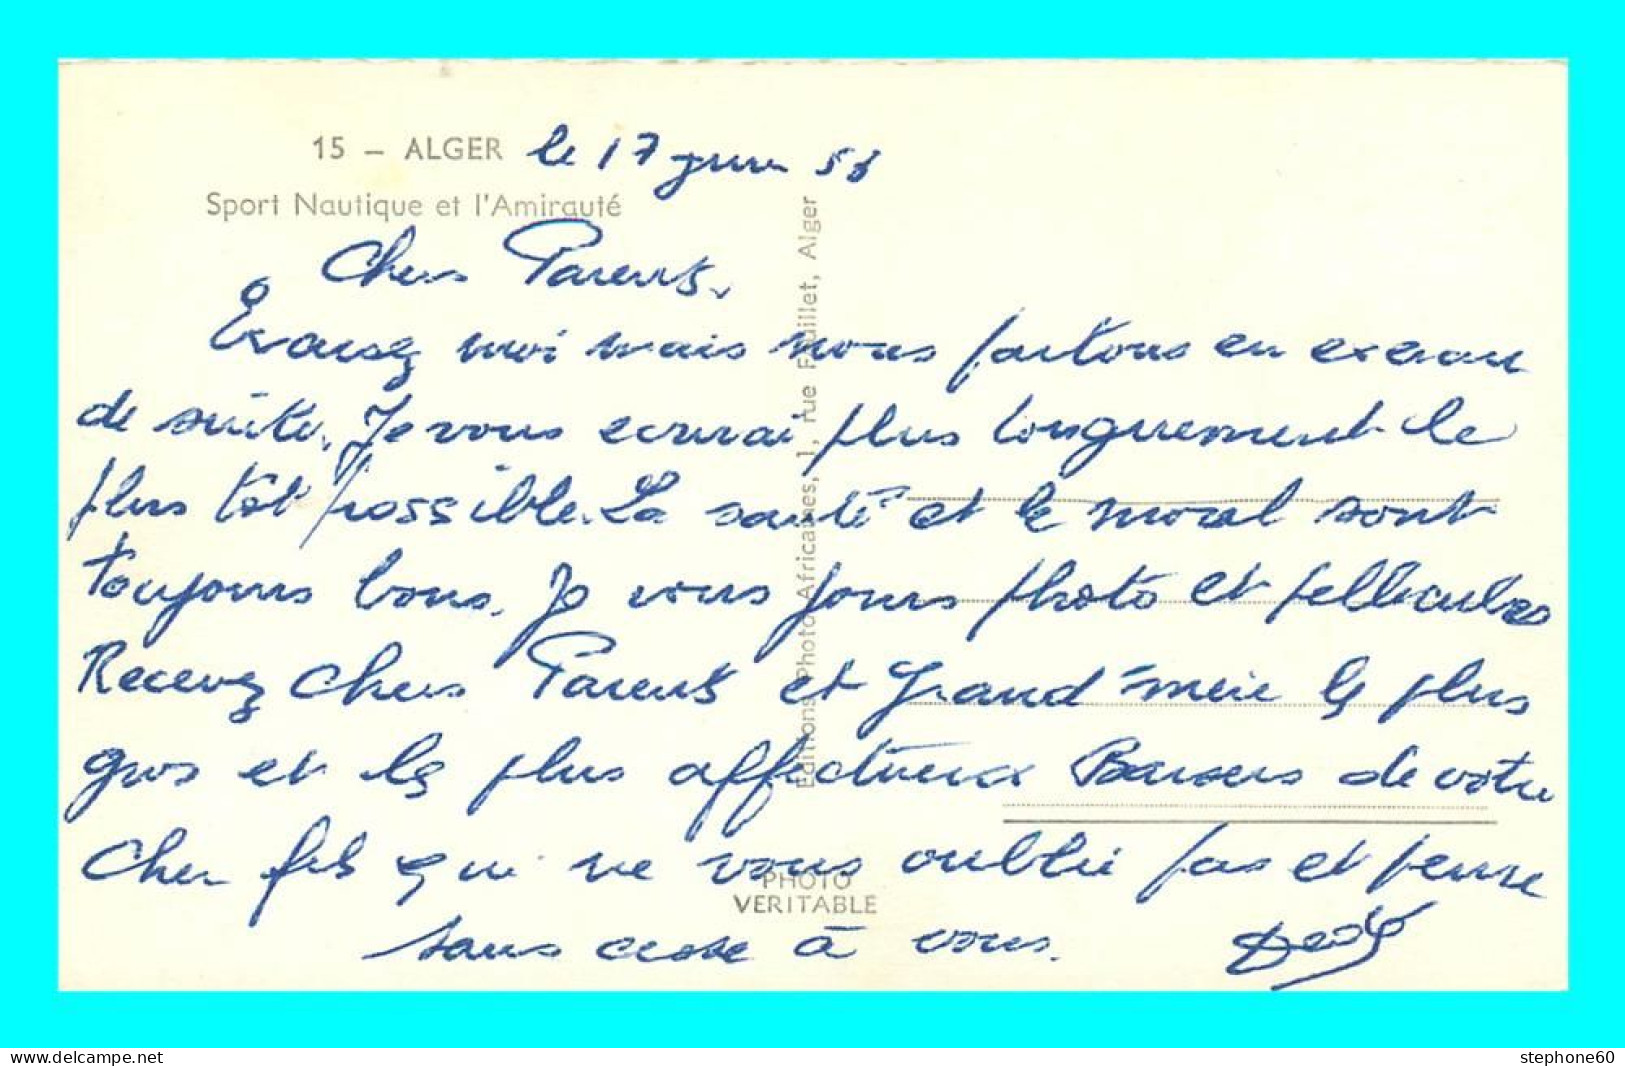 15 – ALGER le 17 juin 58
Sport Nautique et l'Amirauté
Chers Parents,
Excusez moi mais nous partons en
de suite. Je vous ecrirai plus longuement le
plus tôt possible. La santé et le moral sont
toujours bons. Je vous joins photo et pellicules
Recevez chers Parents et grand'mère les plus
gros et les plus affectueux Baisers de votre
Cher fils qui ne vous oublie pas et pense
sans cesse à vous.
Editions Photo Africaines, 1, rue Feuillet, Alger
PHOTO
VERITABLE
www.delcampe.net
stephone60